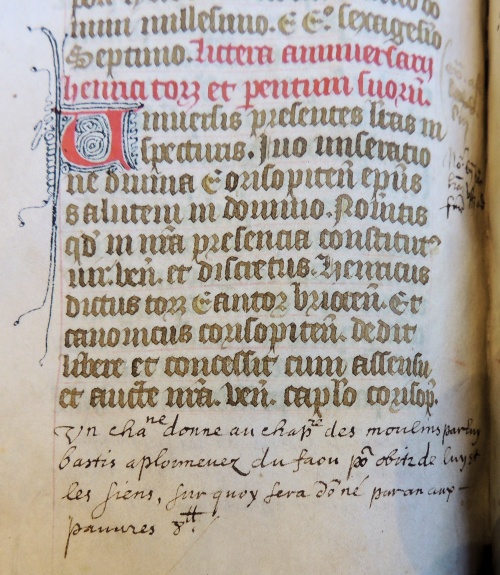 mini millesimo. CC°. sexagesio
Septimo. Littera anniuersarij
henrici torz et parentum suorum.
Uniuersis presentes litteras in
specturis. Iuo miseratio
ne diuina Corisopiten epus
salutem in domino. Noueritis
qd in nra presencia constitut
vir. ven. et discretus. Henricus
dictus torz Cantor briocen. Et
canonicus corisopiten. dedit
libere et concessit cum assensu
et aucte nra. ven. caplo corisop.
Un chane donne au chapre des moulins par luy
bastis a ploumenez du faou pr obitz de luy et
les siens, sur quoy sera doné par an aux
pauures